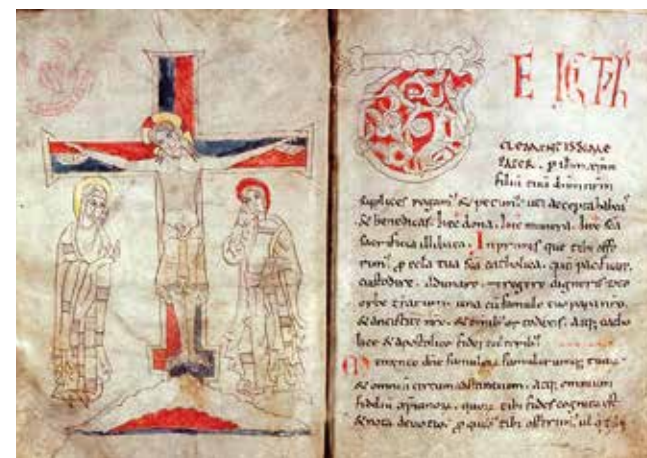 TE
CLEMENTISSIME
PATER. p ihm xpm
filiū tuū dnm nrm
supplices rogam' & petim' uti accepta habeas
& benedicas. hec dona. hec munera. hec scā
sacrificia illibata. In primis que tibi offe
rim' p eccla tua scā catholica. quā pacificare.
custodire. adunare. & regere digneris toto
orbe terrarum. una cū famulo tuo papa nro.
& antistite nro. & omnib; catho
lice & apostolice fidei cultorib;
Memento dne famulorū famularumq; tuarū
& omniū circum adstantium. atq; omnium
fideliū xpianorū. quorū tibi fides cognita est
& nota deuotio. p quib' tibi offerim' uel qui